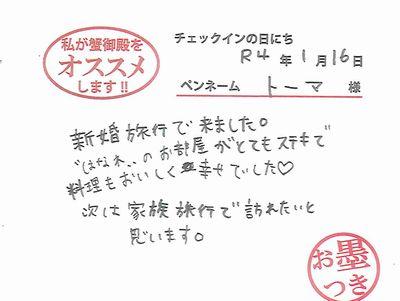 私が蟹御殿を
オススメ
します!!
チェックインの日にち
R4年1月16日
ペンネーム トーマ 様
新婚旅行で来ました。
"はなれ"のお部屋がとてもステキで
料理もおいしく幸せでした♡
次は家族旅行で訪れたいと
思います。
お墨
つき